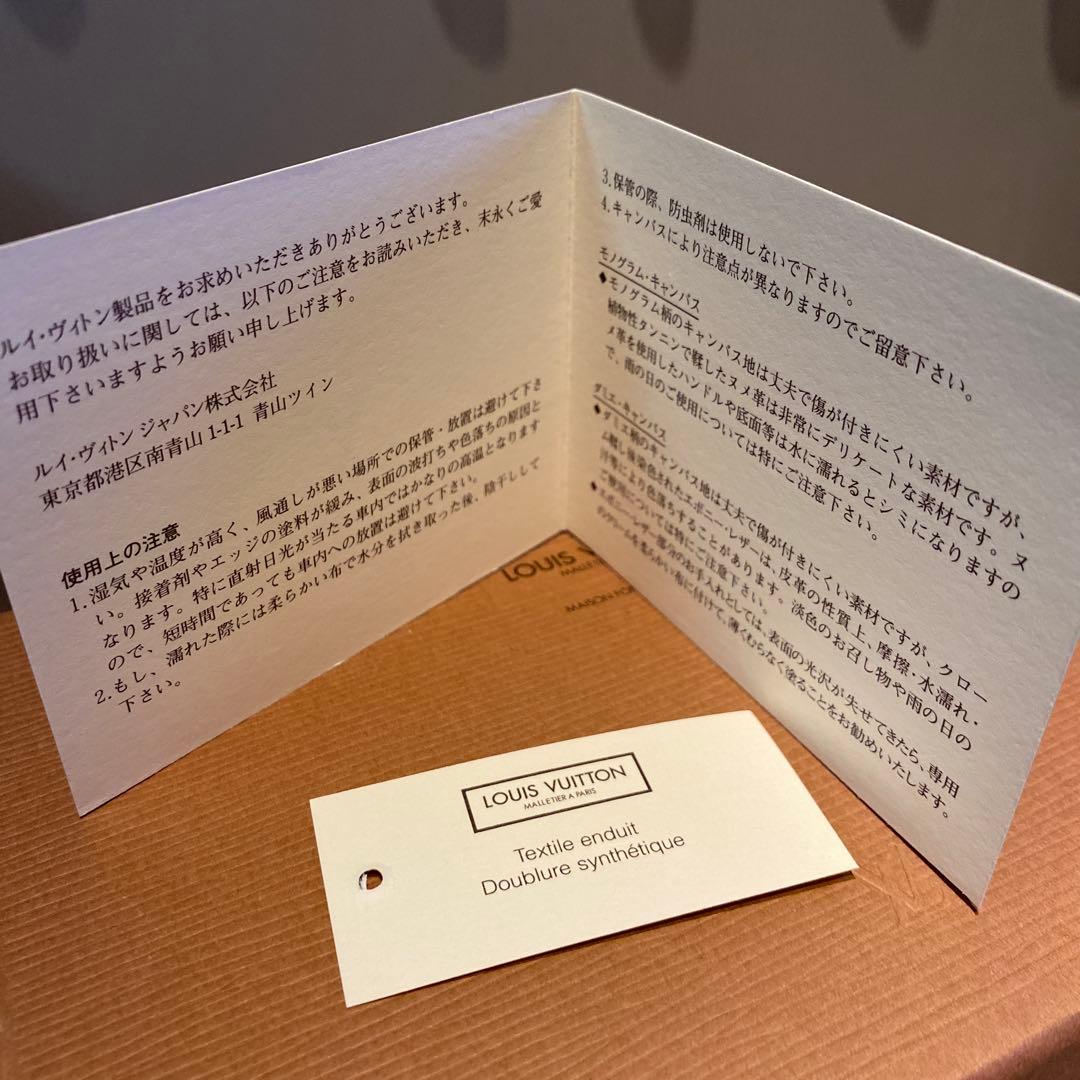 ルイ・ヴィトン製品をお求めいただきありがとうございます。
お取り扱いに関しては、以下のご注意をお読みいただき、末永くご愛
用下さいますようお願い申し上げます。
ルイ・ヴィトン ジャパン株式会社
東京都港区南青山 1-1-1 青山ツイン
使用上の注意
1.湿気や温度が高く、風通しが悪い場所での保管・放置は避けて下さ
い。接着剤やエッジの塗料が緩み、表面の波打ちや色落ちの原因と
なります。特に直射日光が当たる車内ではかなりの高温となります
ので、短時間であっても車内への放置は避けて下さい。
2.もし、濡れた際には柔らかい布で水分を拭き取った後、陰干しして
下さい。
3.保管の際、防虫剤は使用しないで下さい。
4.キャンバスにより注意点が異なりますのでご留意下さい。
モノグラム・キャンバス
◆モノグラム柄のキャンバス地は丈夫で傷が付きにくい素材ですが、
植物性タンニンで鞣したヌメ革は非常にデリケートな素材です。ヌ
メ革を使用したハンドルや底面等は水に濡れるとシミになりますの
で、雨の日のご使用については特にご注意下さい。
ダミエ・キャンバス
◆ダミエ柄のキャンバス地は丈夫で傷が付きにくい素材ですが、クロー
ム鞣し後染色されたエボニー・レザーは、皮革の性質上、摩擦・水濡れ・
汗等により色落ちすることがあります。淡色のお召し物や雨の日の
ご使用については特にご注意下さい。
◆エボニー・レザー部分のお手入れとしては、表面の光沢が失せてきたら、専用
のクリームを柔らかい布に付けて、薄くむらなく塗ることをお勧めいたします。
LOUIS VU
MALLETIER
MAISON FO
LOUIS VUITTON
MALLETIER A PARIS
Textile enduit
Doublure synthétique